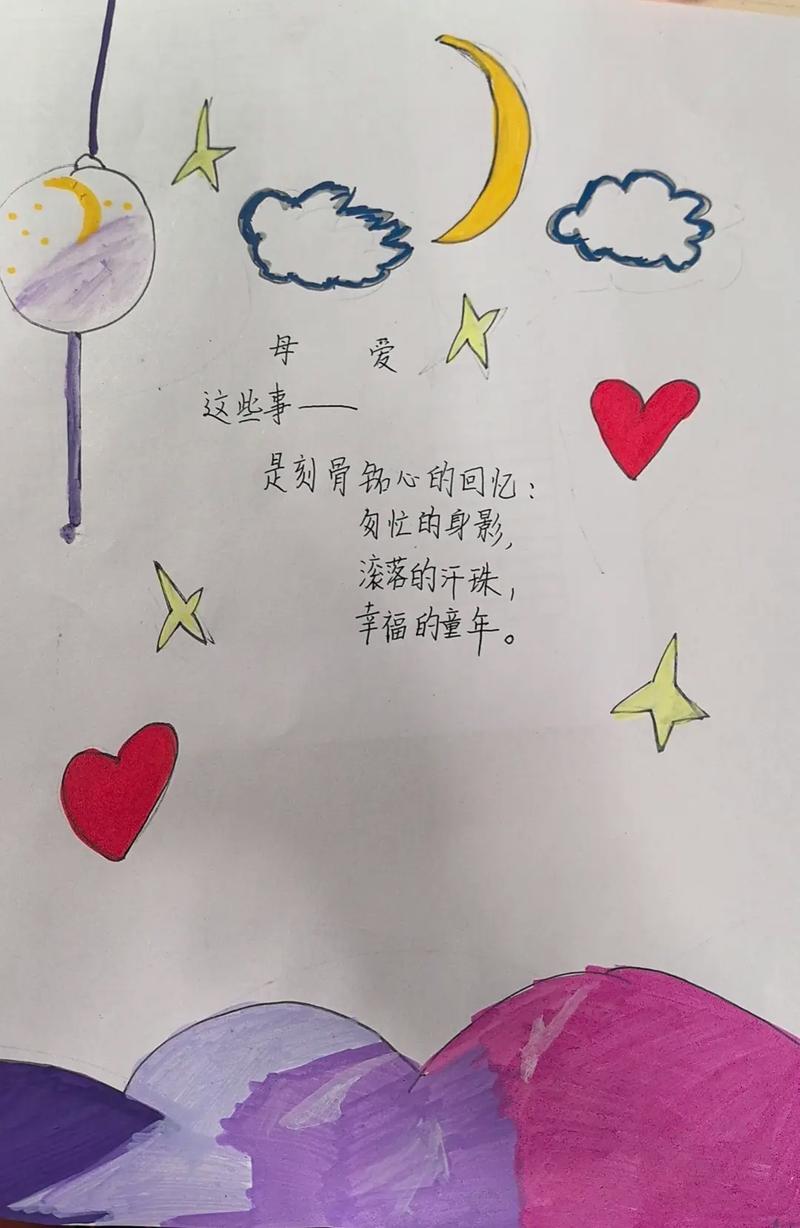 母 爱
这些事——
是刻骨铭心的回忆：
匆忙的身影，
滚落的汗珠，
幸福的童年。